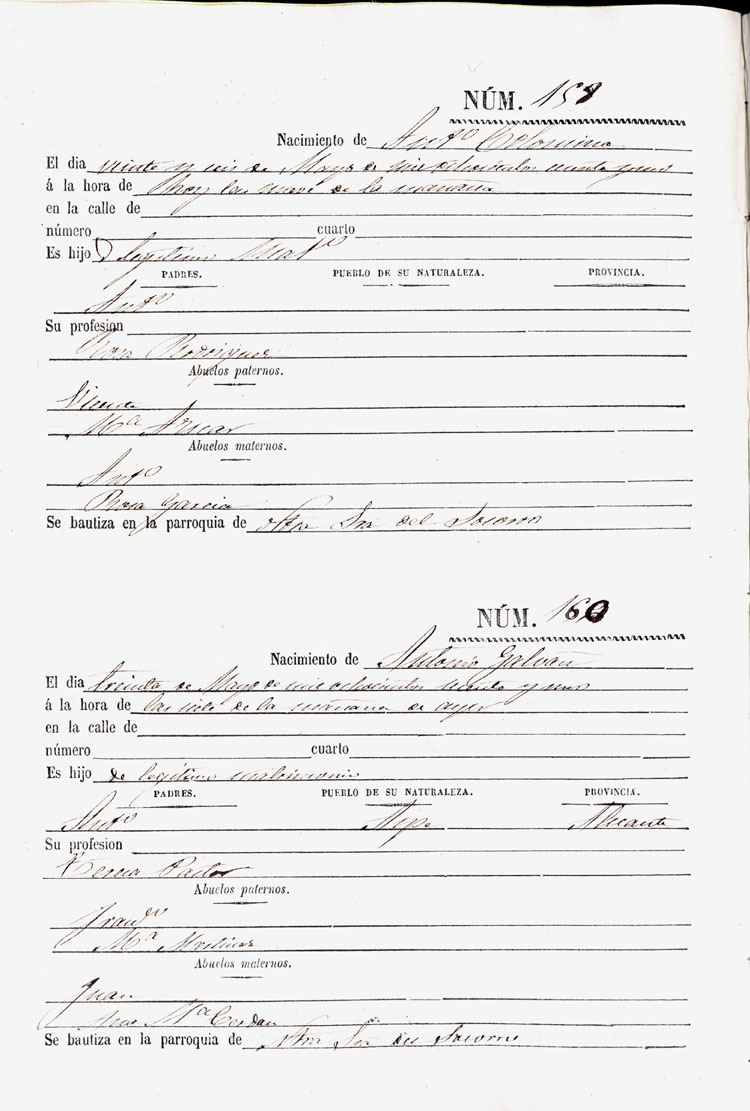 NÚM. 158
Nacimiento de Antº Colomina
El dia veinte y seis de Mayo de mil ochocientos y uno
á la hora de hoy las nueve de la mañana
en la calle de
número cuarto
Es hijo D legitimo Matº
PADRES. PUEBLO DE SU NATURALEZA. PROVINCIA.
Antº
Su profesion
Rosa Rodriguez
Abuelos paternos.
Vicente
Mª Aznar
Abuelos maternos.
Antº
Rosa Garcia
Se bautiza en la parroquia de Ntra Sra del Socorro
NÚM. 160
Nacimiento de Antonio Galvañ
El dia treinta de Mayo de mil ochocientos y uno
á la hora de las siete de la mañana de ayer
en la calle de
número cuarto
Es hijo de legitimo matrimonio
PADRES. PUEBLO DE SU NATURALEZA. PROVINCIA.
Antº Aspe Alicante
Su profesion
Teresa Pastor
Abuelos paternos.
Francº
Mª Molines
Abuelos maternos.
Juan
Mª Cerdan
Se bautiza en la parroquia de Ntra Sra del Socorro